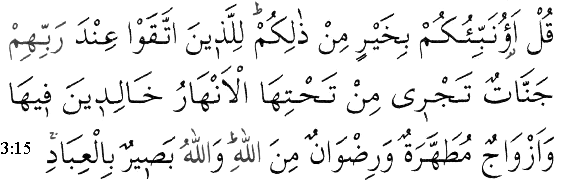 قُلْ اَؤُنَبِّئُكُمْ بِخَيْرٍ مِنْ ذٰلِكُمْؕ لِلَّذٖينَ اتَّقَوْا عِنْدَ رَبِّهِمْ
جَنَّاتٌ تَجْرٖى مِنْ تَحْتِهَا الْاَنْهَارُ خَالِدٖينَ فٖيهَا
وَاَزْوَاجٌ مُطَهَّرَةٌ وَرِضْوَانٌ مِنَ اللّٰهِؕ وَاللّٰهُ بَصٖيرٌ بِالْعِبَادِۚ 3:15